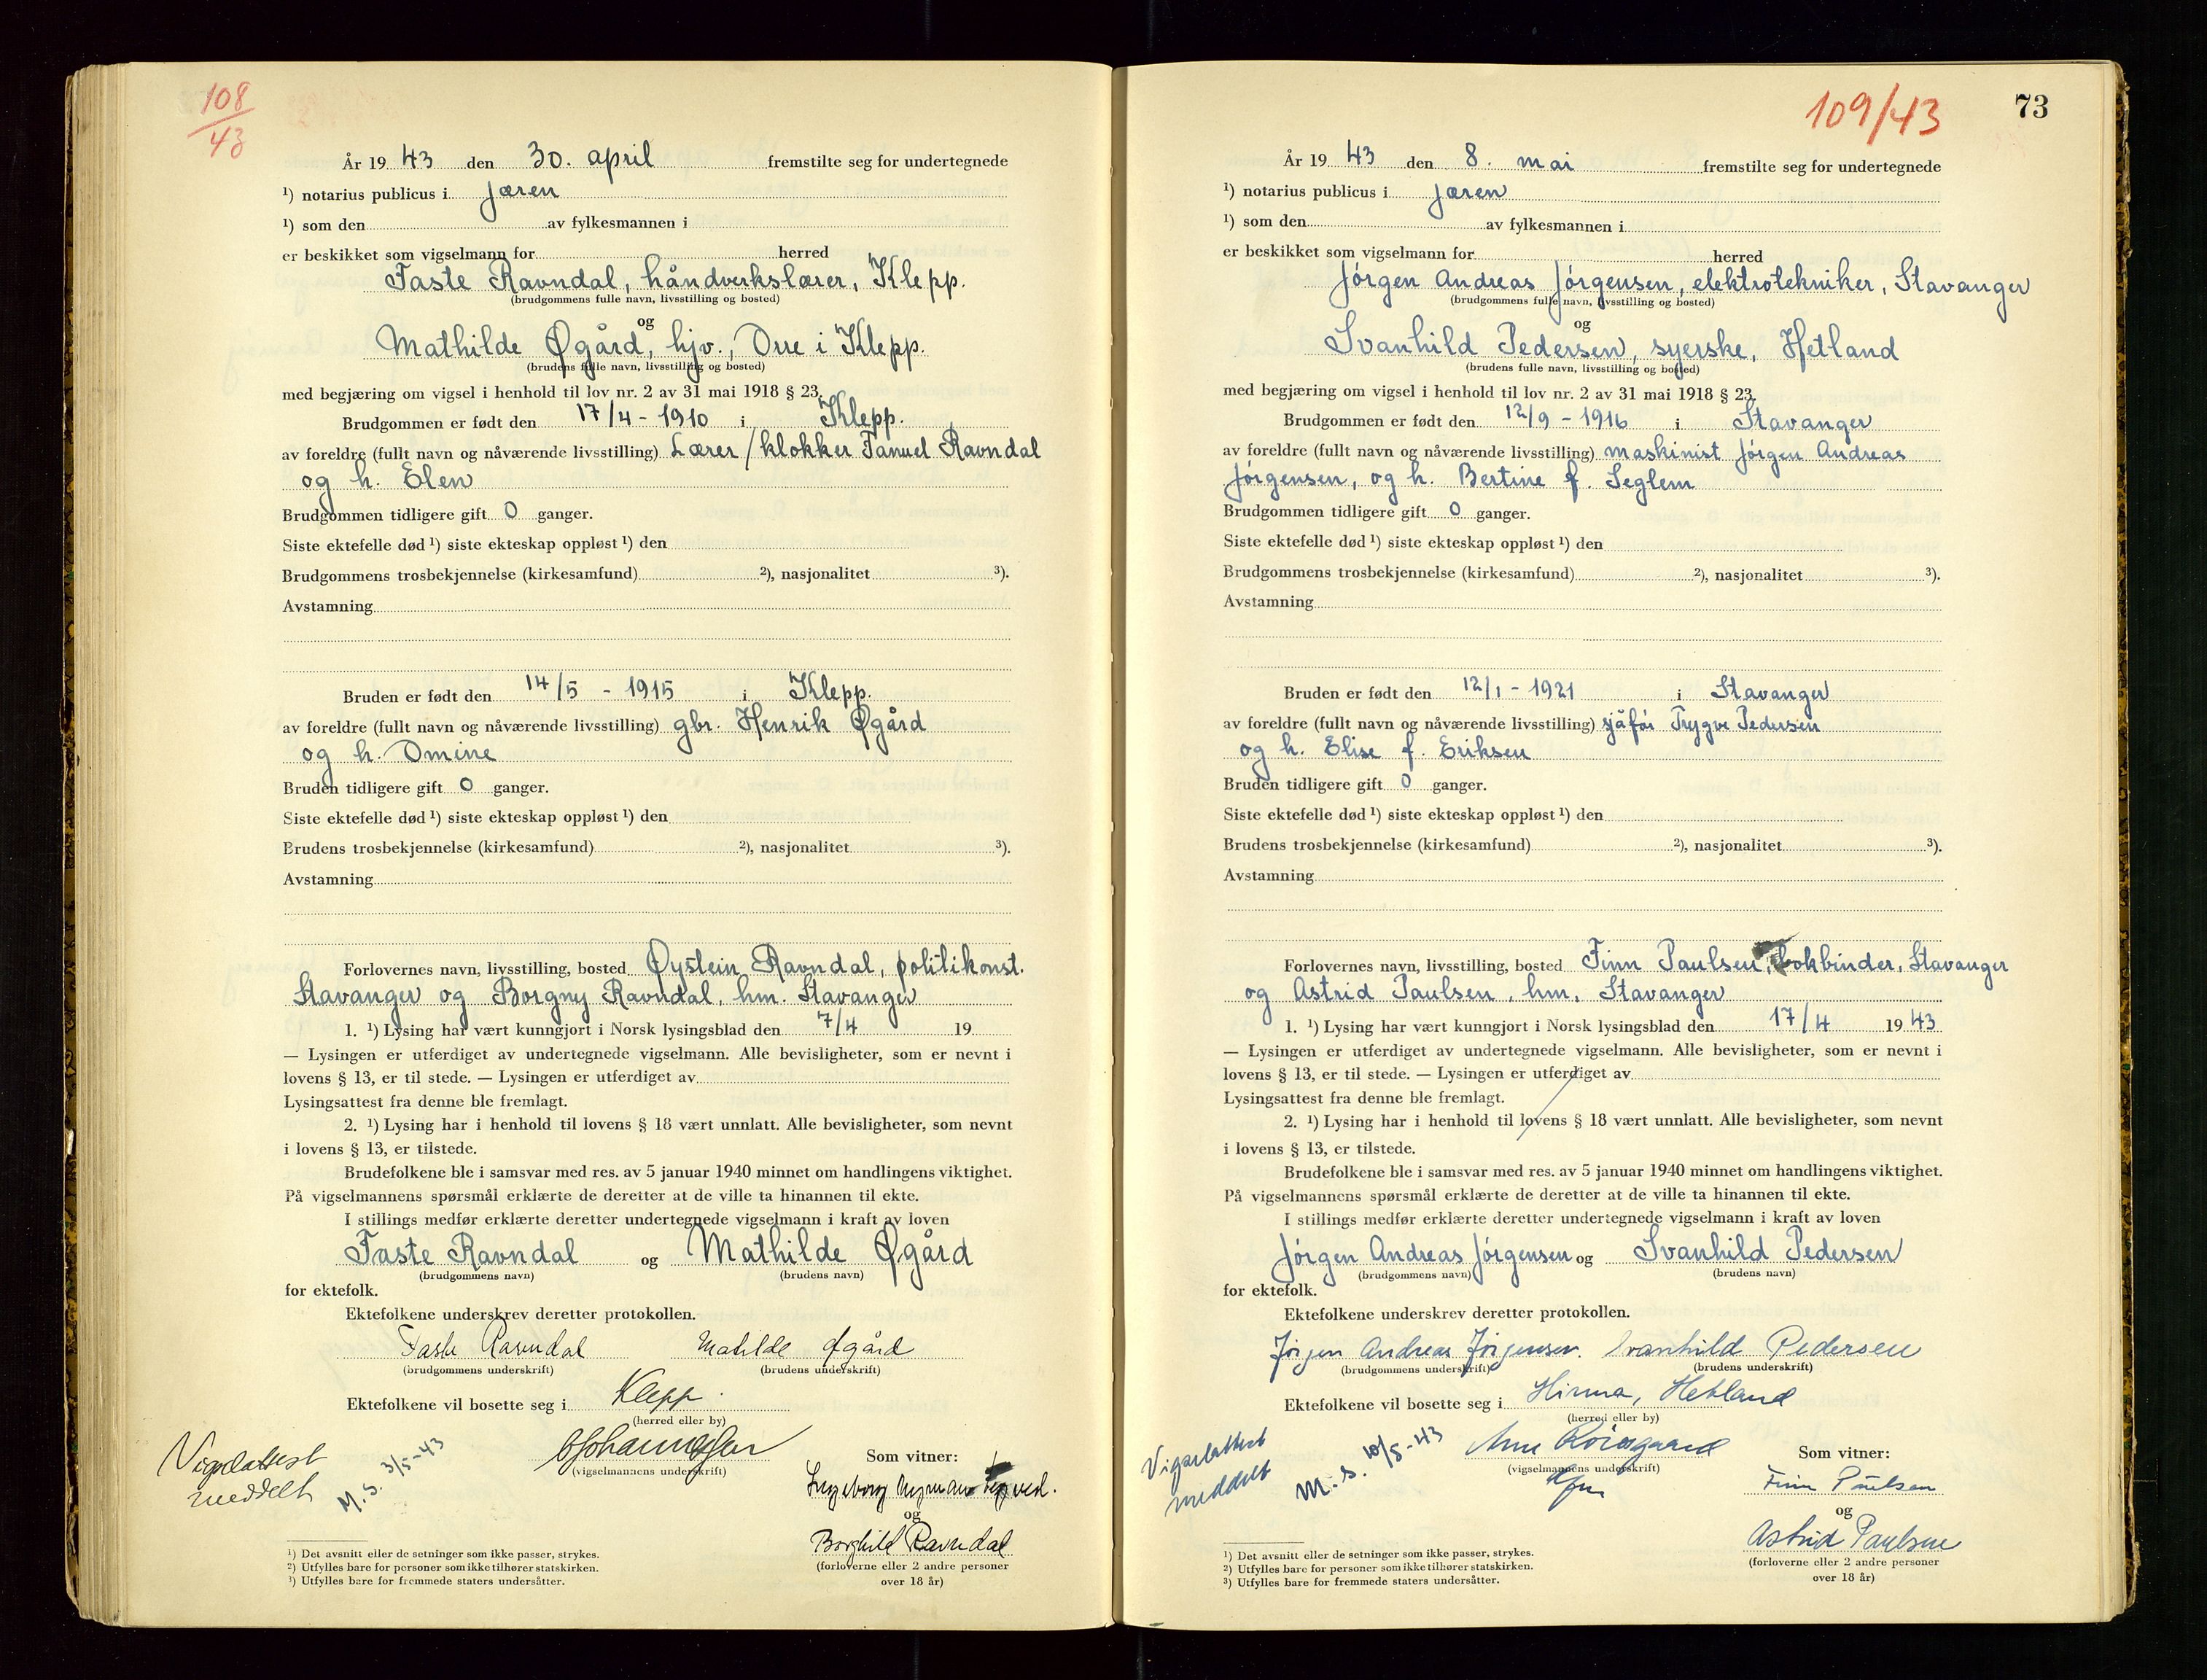 108
43
År 19 43 den 30. april fremstilte seg for undertegnede
¹) notarius publicus i Jæren
¹) som den av fylkesmannen i
er beskikket som vigselmann for herred
Faste Ravndal, håndverkslærer, Klepp.
(brudgommens fulle navn, livsstilling og bosted)
og
Mathilde Øgård, hjv., Orre i Klepp.
(brudens fulle navn, livsstilling og bosted)
med begjæring om vigsel i henhold til lov nr. 2 av 31 mai 1918 § 23.
Brudgommen er født den 17/4 - 1910 i Klepp.
av foreldre (fullt navn og nåværende livsstilling) Lærer/klokker Fanuel Ravndal
og h. Elen
Brudgommen tidligere gift 0 ganger.
Siste ektefelle død ¹) siste ekteskap oppløst ¹) den
Brudgommens trosbekjennelse (kirkesamfund) ²), nasjonalitet ³).
Avstamning
Bruden er født den 14/5 - 1915 i Klepp.
av foreldre (fullt navn og nåværende livsstilling) gbr. Henrik Øgård
og h. Omine
Bruden tidligere gift 0 ganger.
Siste ektefelle død ¹) siste ekteskap oppløst ¹) den
Brudens trosbekjennelse (kirkesamfund) ²), nasjonalitet ³).
Avstamning
Forlovernes navn, livsstilling, bosted Øystein Ravndal, politikonst.
Stavanger og Borgny Ravndal, hm. Stavanger
1. ¹) Lysing har vært kunngjort i Norsk lysingsblad den 7/4 19
— Lysingen er utferdiget av undertegnede vigselmann. Alle bevisligheter, som er nevnt i
lovens § 13, er til stede. — Lysingen er utferdiget av
Lysingsattest fra denne ble fremlagt.
2. ¹) Lysing har i henhold til lovens § 18 vært unnlatt. Alle bevisligheter, som nevnt
i lovens § 13, er tilstede.
Brudefolkene ble i samsvar med res. av 5 januar 1940 minnet om handlingens viktighet.
På vigselmannens spørsmål erklærte de deretter at de ville ta hinannen til ekte.
I stillings medfør erklærte deretter undertegnede vigselmann i kraft av loven
Faste Ravndal og Mathilde Øgård
(brudgommens navn) (brudens navn)
for ektefolk.
Ektefolkene underskrev deretter protokollen.
Faste Ravndal Matilde Øgård
(brudgommens underskrift) (brudens underskrift)
Ektefolkene vil bosette seg i Klepp.
(herred eller by)
Vigselattest
meddelt
M.S. 3/5-43
(vigselmannens underskrift)
Som vitner:
Ingeborg
og
Borghild Ravndal
(forloverne eller 2 andre personer
over 18 år)
¹) Det avsnitt eller de setninger som ikke passer, strykes.
²) Utfylles bare for personer som ikke tilhører statskirken.
³) Utfylles bare for fremmede staters undersåtter.
109/43 73
År 19 43 den 8. mai fremstilte seg for undertegnede
¹) notarius publicus i Jæren
¹) som den av fylkesmannen i
er beskikket som vigselmann for herred
Jörgen Andreas Jörgensen, elektrotekniker, Stavanger
(brudgommens fulle navn, livsstilling og bosted)
og
Svanhild Pedersen, syerske, Hetland
(brudens fulle navn, livsstilling og bosted)
med begjæring om vigsel i henhold til lov nr. 2 av 31 mai 1918 § 23.
Brudgommen er født den 12/9 - 1916 i Stavanger
av foreldre (fullt navn og nåværende livsstilling) maskinist Jörgen Andreas
Jörgensen, og h. Bertine f. Seglem
Brudgommen tidligere gift 0 ganger.
Siste ektefelle død ¹) siste ekteskap oppløst ¹) den
Brudgommens trosbekjennelse (kirkesamfund) ²), nasjonalitet ³).
Avstamning
Bruden er født den 12/1 - 1921 i Stavanger
av foreldre (fullt navn og nåværende livsstilling) sjåför Trygve Pedersen
og h. Elise f. Eriksen
Bruden tidligere gift 0 ganger.
Siste ektefelle død ¹) siste ekteskap oppløst ¹) den
Brudens trosbekjennelse (kirkesamfund) ²), nasjonalitet ³).
Avstamning
Forlovernes navn, livsstilling, bosted Finn Paulsen, bokbinder, Stavanger
og Astrid Paulsen, hm. Stavanger
1. ¹) Lysing har vært kunngjort i Norsk lysingsblad den 17/4 19 43
— Lysingen er utferdiget av undertegnede vigselmann. Alle bevisligheter, som er nevnt i
lovens § 13, er til stede. — Lysingen er utferdiget av
Lysingsattest fra denne ble fremlagt.
2. ¹) Lysing har i henhold til lovens § 18 vært unnlatt. Alle bevisligheter, som nevnt
i lovens § 13, er tilstede.
Brudefolkene ble i samsvar med res. av 5 januar 1940 minnet om handlingens viktighet.
På vigselmannens spørsmål erklærte de deretter at de ville ta hinannen til ekte.
I stillings medfør erklærte deretter undertegnede vigselmann i kraft av loven
Jörgen Andreas Jörgensen og Svanhild Pedersen
(brudgommens navn) (brudens navn)
for ektefolk.
Ektefolkene underskrev deretter protokollen.
Jörgen Andreas Jörgensen. Svanhild Pedersen
(brudgommens underskrift) (brudens underskrift)
Ektefolkene vil bosette seg i Hinna, Hetland
(herred eller by)
Vigselattest
meddelt
M.S. 10/5-43
(vigselmannens underskrift)
Som vitner:
Finn Paulsen
og
Astrid Paulsen
(forloverne eller 2 andre personer
over 18 år)
¹) Det avsnitt eller de setninger som ikke passer, strykes.
²) Utfylles bare for personer som ikke tilhører statskirken.
³) Utfylles bare for fremmede staters undersåtter.